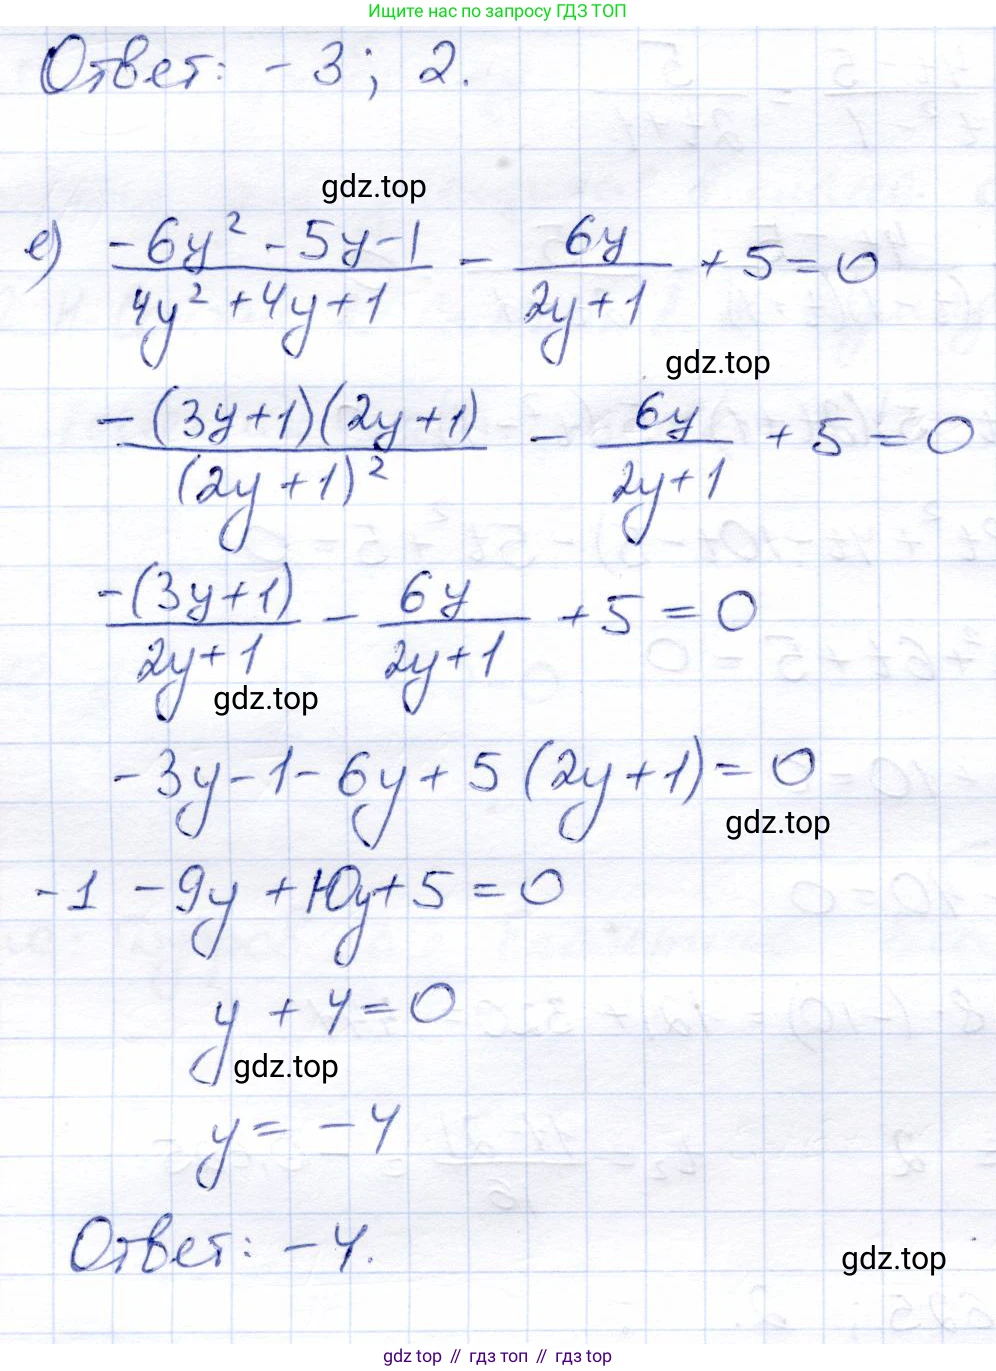 Ищите нас по запросу ГДЗ ТОП
Ответ: -3; 2.
gdz.top
е) (-6y² - 5y - 1)/(4y² + 4y + 1) - 6y/(2y + 1) + 5 = 0
gdz.top
-(3y + 1)(2y + 1)/(2y + 1)² - 6y/(2y + 1) + 5 = 0
-(3y + 1)/(2y + 1) - 6y/(2y + 1) + 5 = 0
gdz.top
-3y - 1 - 6y + 5(2y + 1) = 0
gdz.top
-1 - 9y + 10y + 5 = 0
y + 4 = 0
gdz.top
y = -4
Ответ: -4.
gdz.top
gdz top // гдз топ // гдз top